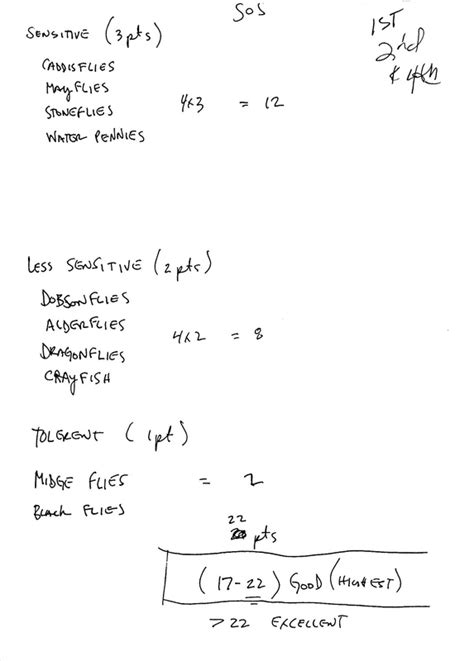 SOS
1ST
2nd
& 4th
SENSITIVE (3 pts)
CADDISFLIES
MAYFLIES
STONEFLIES
4x3 = 12
WATER PENNIES
LESS SENSITIVE (2 pts)
DOBSONFLIES
ALDERFLIES
DRAGONFLIES
4x2 = 8
CRAYFISH
TOLERENT (1pt)
MIDGE FLIES = 2
BLACK FLIES
22
pts
(17-22) GOOD (HIGHEST)
>22 EXCELLENT